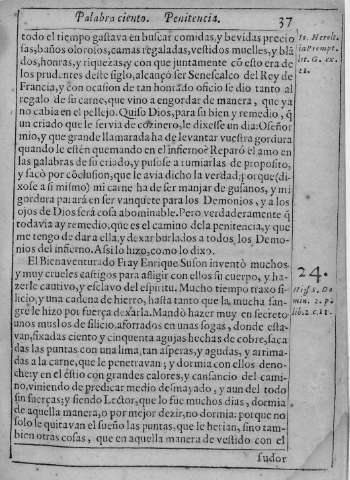 Palabra ciento. Penitencia. 37
todo el tiempo gastava en buscar comidas, y bevidas precio
sas, baños olorosos, camas regaladas, vestidos muelles, y blã
dos, honras, y riquezas, y con que juntamente cõ esto era de
los prudentes deste siglo, alcançó ser Senescalco del Rey de
Francia, y con ocasion de tan honrado oficio se dio tanto al
regalo de su carne, que vino a engordar de manera, que ya
no cabia en el pellejo. Quiso Dios, para su bien y remedio, q̃
un criado que le servia de cozinero, le dixesse un dia: O señor
mio, y que grande llamarada ha de levantar vuestra gordura
quando le estèn quemando en el infierno? Reparó el amo en
las palabras de su criado, y pusose a rumiarlas de proposito,
y sacò por cõclusion, que le avia dicho la verdad; porque (di-
xose a si mismo) mi carne ha de ser manjar de gusanos, y mi
gordura parará en ser vanquete para los Demonios, y a los
ojos de Dios serà cosa abominable. Pero verdaderamente q̃
todavia ay remedio, que es el camino de la penitencia, y que
me tengo de dar a ella, y dexar burlados a todos los Demo-
nios del infierno. Assi lo hizo, como lo dixo.
El Bienaventurado Fray Enrique Suson inventò muchos
y muy crueles castigos para afligir con ellos su cuerpo, y ha-
zerle cautivo, y esclavo del espiritu. Mucho tiempo traxo si-
licio, y una cadena de hierro, hasta tanto que la mucha san-
gre le hizo por fuerça dexarla. Mandò hazer muy en secreto
unos muslos de silicio, aforrados en unas sogas, donde esta-
van, fixadas ciento y cinquenta agujas hechas de cobre, saca
das las puntas con una lima, tan asperas, y agudas, y arrima-
das a la carne, que le penetravan; y dormia con ellos deno-
che: y en el estio con grandes calores, y cansancio del cami-
no, viniendo de predicar medio desmayado, y aun del todo
sin fuerças; y siendo Lector, que lo fue muchos dias, dormia
de aquella manera, o por mejor dezir, no dormia: porque no
solo le quitavan el sueño las puntas, que le herian, sino tam-
bien otras cosas, que en aquella manera de vestido con el
sudor
in Prompt.
lit. G. ex.
24.